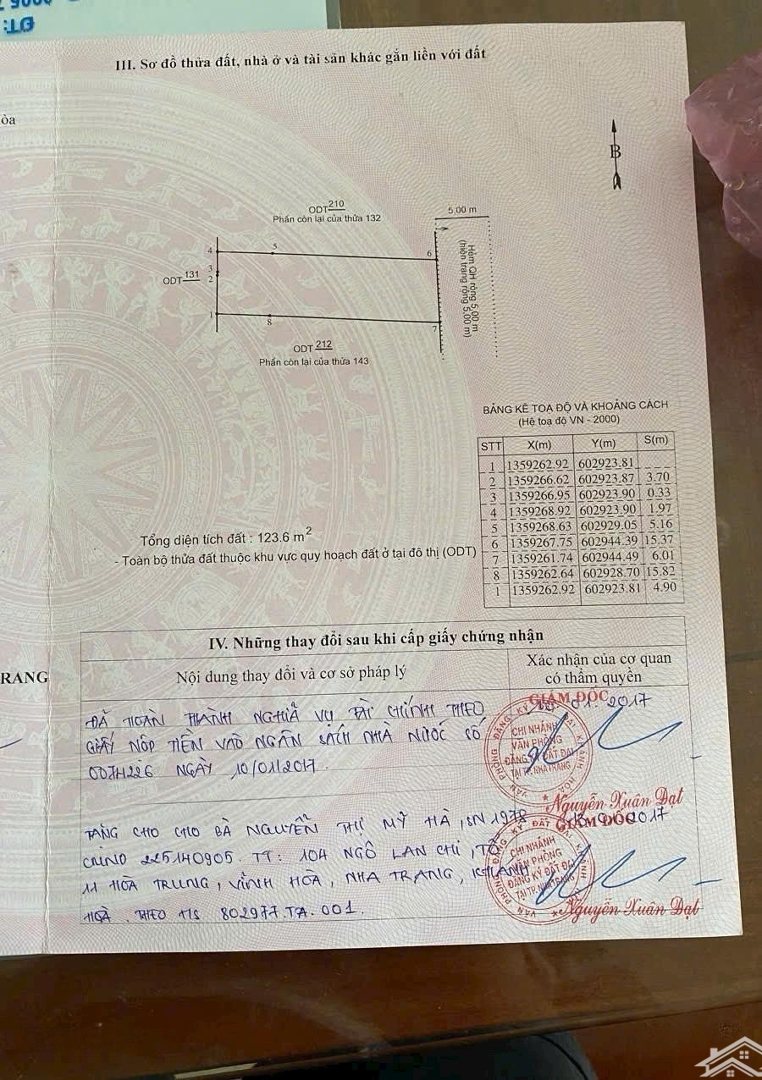 ĐT:
III. Sơ đồ thửa đất, nhà ở và tài sản khác gắn liền với đất
òa
B
ODT 210
Phần còn lại của thửa 132
5.00 m
4
5
6
3
2
ODT 131
1
8
7
Hẻm QH rộng 5,00 m
(hiện trạng rộng 5,00 m)
ODT 212
Phần còn lại của thửa 143
BẢNG KÊ TOẠ ĐỘ VÀ KHOẢNG CÁCH
(Hệ toạ độ VN - 2000)
STT X(m) Y(m) S(m)
1 1359262.92 602923.81
2 1359266.62 602923.87 3.70
3 1359266.95 602923.90 0.33
4 1359268.92 602923.90 1.97
5 1359268.63 602929.05 5.16
6 1359267.75 602944.39 15.37
7 1359261.74 602944.49 6.01
8 1359262.64 602928.70 15.82
1 1359262.92 602923.81 4.90
Tổng diện tích đất : 123.6 m²
- Toàn bộ thửa đất thuộc khu vực quy hoạch đất ở tại đô thị (ODT)
IV. Những thay đổi sau khi cấp giấy chứng nhận
RANG
Nội dung thay đổi và cơ sở pháp lý
Xác nhận của cơ quan
có thẩm quyền
ĐÃ HOÀN THÀNH NGHĨA VỤ TÀI CHÍNH THEO
GIẤY NỘP TIỀN VÀO NGÂN SÁCH NHÀ NƯỚC SỐ
007H226 NGÀY 10/01/2017.
01.2017
GIÁM ĐỐC
CHI NHÁNH
VĂN PHÒNG
ĐĂNG KÝ ĐẤT ĐAI
TẠI TP. NHA TRANG
Nguyễn Xuân Đạt
TẶNG CHO CHO BÀ NGUYỄN THỊ MỸ HÀ, SN 1978
CMND 225140905. TT: 104 NGÔ LAN CHI, TỔ
11 HÒA TRUNG, VĨNH HÒA, NHA TRANG, KHÁNH
HOÀ. THEO HS 802977.TA.001.
2017
GIÁM ĐỐC
CHI NHÁNH
VĂN PHÒNG
ĐĂNG KÝ ĐẤT ĐAI
TẠI TP. NHA TRANG
Nguyễn Xuân Đạt